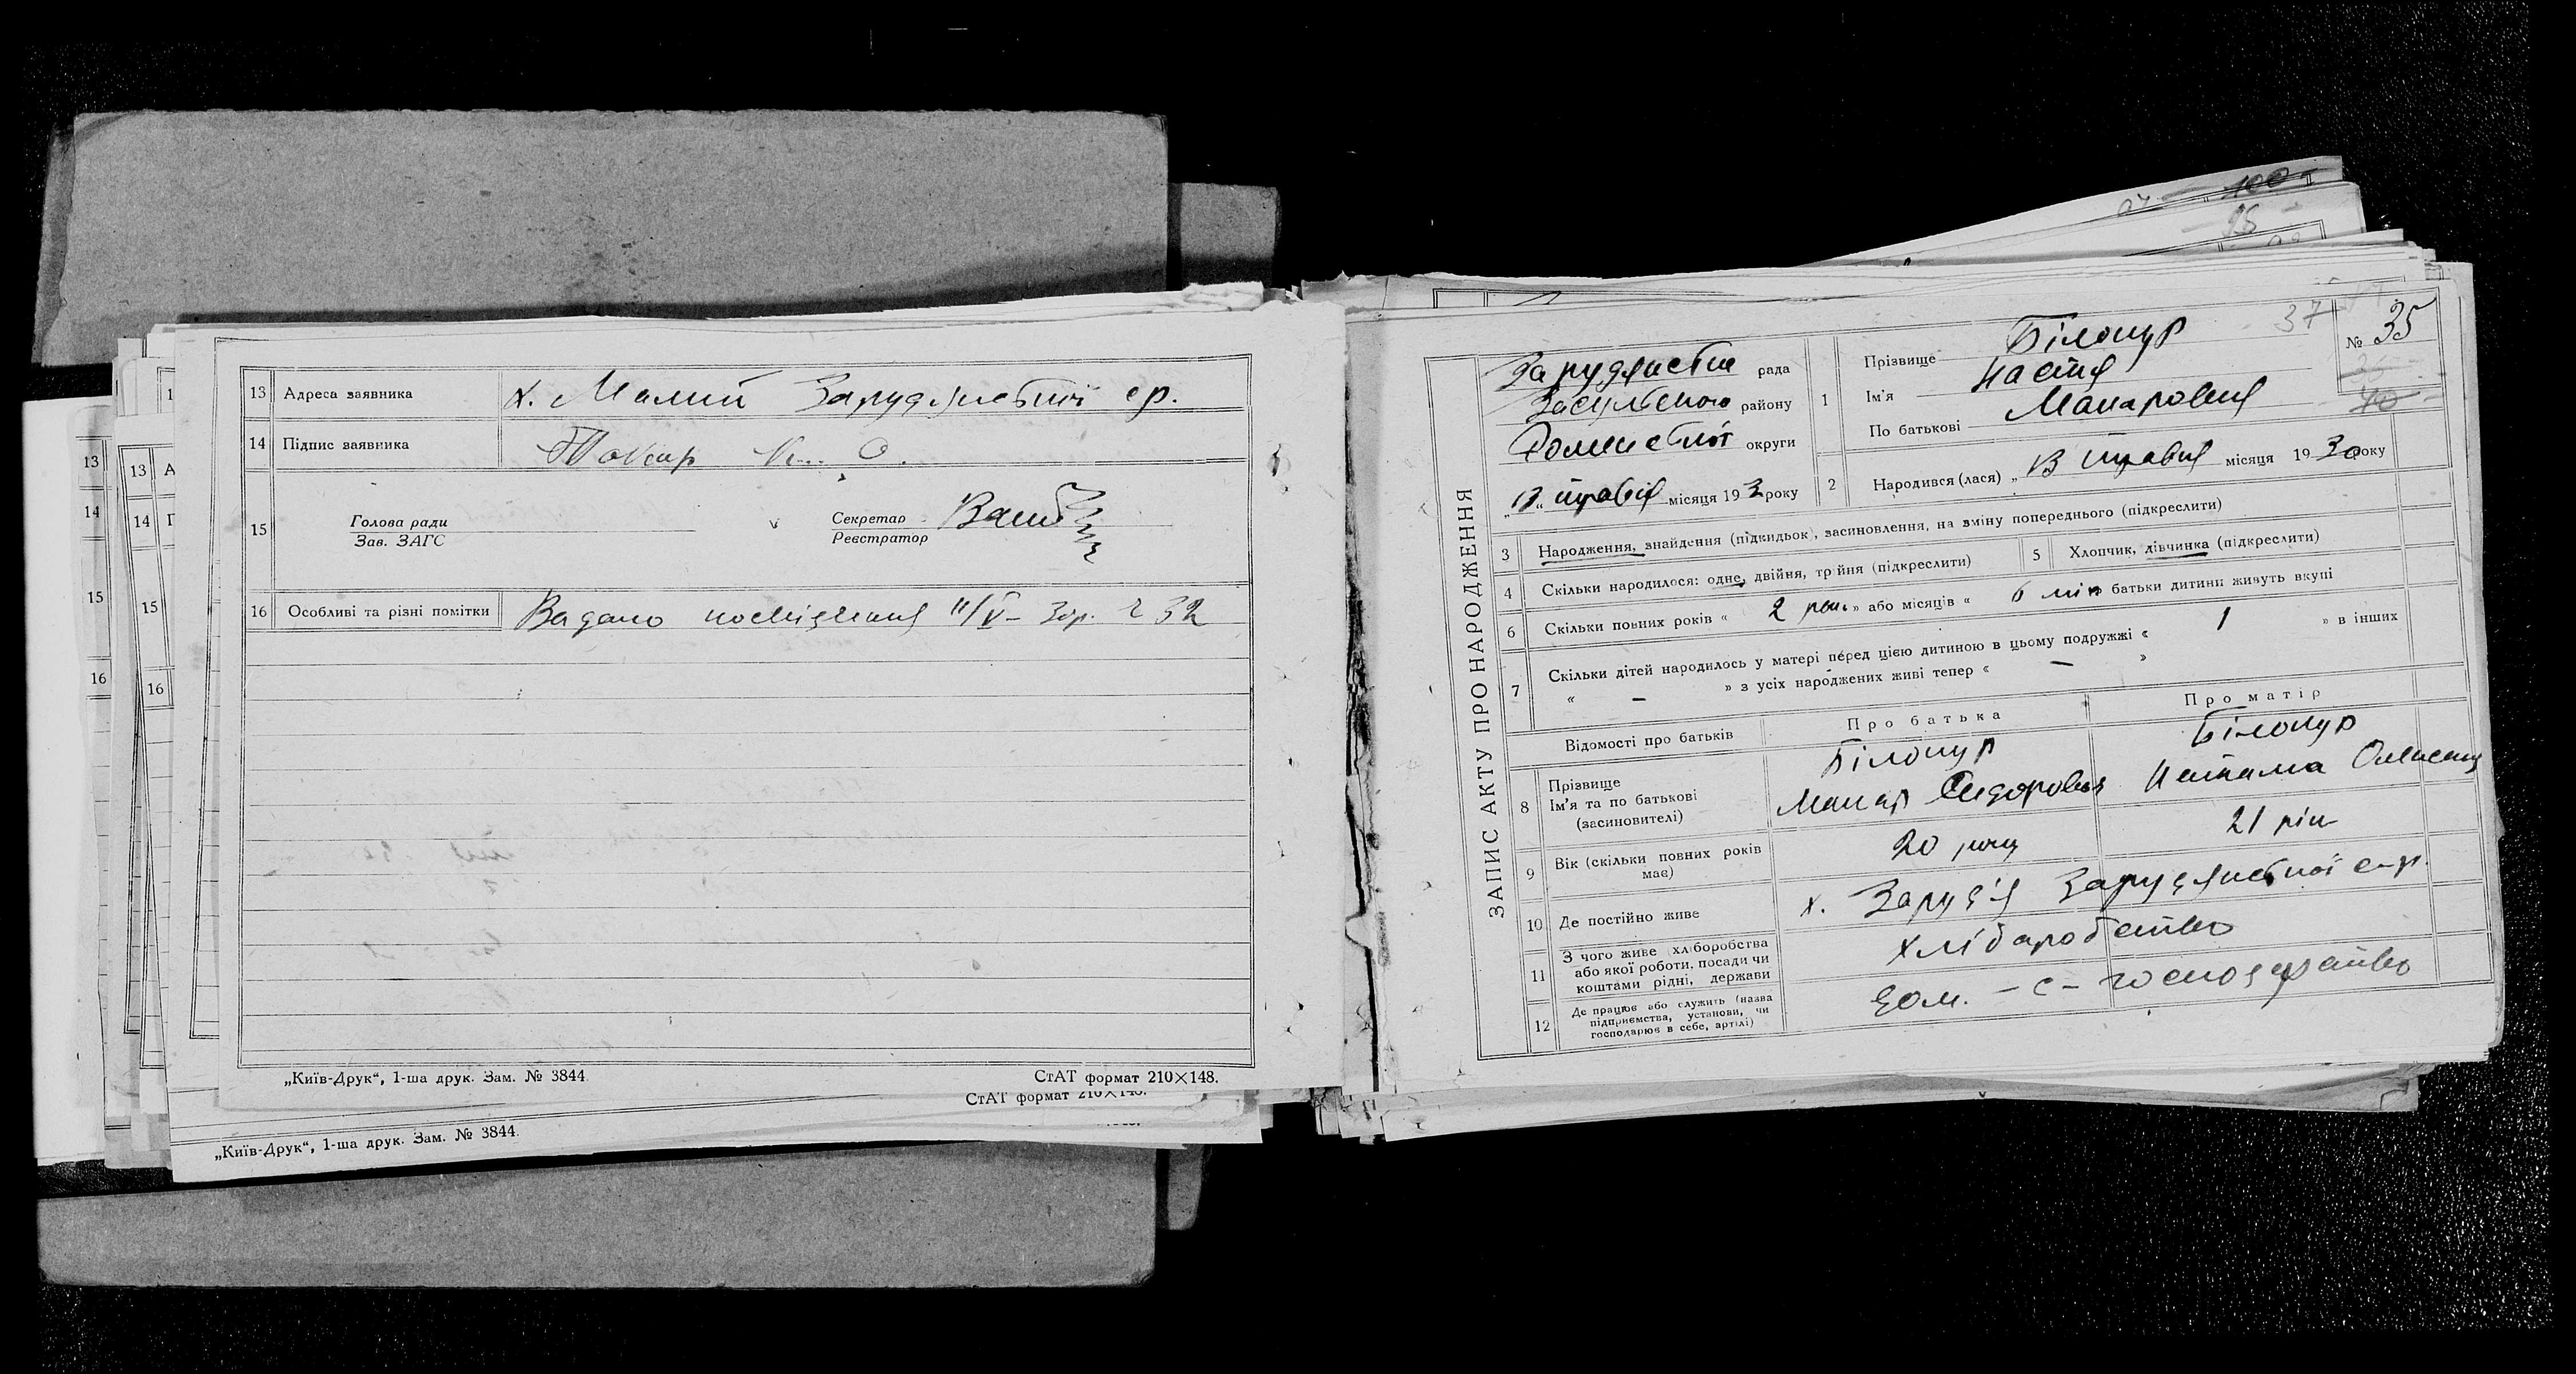 13 Адреса заявника х. Малий Заруднистої ср.
14 Підпис заявника Токар К. О.
15 Голова ради Секретар
Зав. ЗАГС Реєстратор
16 Особливі та різні помітки Видано посвідчення 11/V-30р. 32
„Київ-Друк“, 1-ша друк. Зам. № 3844.
СтАТ формат 210×148.
СтАТ формат 210×148.
„Київ-Друк“, 1-ша друк. Зам. № 3844.
13
14
15
16
13 А
14 П
15
16
100
95
37
ЗАПИС АКТУ ПРО НАРОДЖЕННЯ
рада
району
Роменської округи
травня місяця 193 року
№ 35
1 Прізвище Білокур
Ім'я Настя
По батькові Макаровна
2 Народився (лася) „ травня місяця 1930 року
3 Народження, знайдення (підкидьок), засиновлення, на зміну попереднього (підкреслити)
4 Скільки народилося: одне, двійня, трійня (підкреслити)
5 Хлопчик, дівчинка (підкреслити)
6 Скільки повних років « 2 роки » або місяців « 6 міс » батьки дитини живуть вкупі
7 Скільки дітей народилось у матері перед цією дитиною в цьому подружжі « 1 » в інших
« — » з усіх народжених живі тепер « — »
Відомості про батьків Про батька Про матір
8 Прізвище Білокур Білокур
Ім'я та по батькові Макар Сидорович
(засиновителі)
9 Вік (скільки повних років має) 20 року 21 рік
10 Де постійно живе х. Заруддя с-р.
11 З чого живе (хліборобства або якої роботи, посади чи коштами рідні, держави хліборобство
12 Де працює або служить (назва підприємства, установи, чи господарює в себе, артілі) дом. - с - господарство